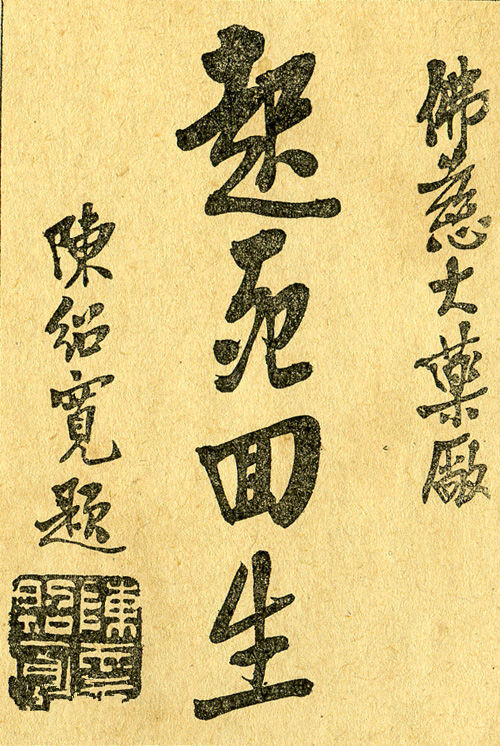 佛慈大藥廠
起死回生
陳紹寬題